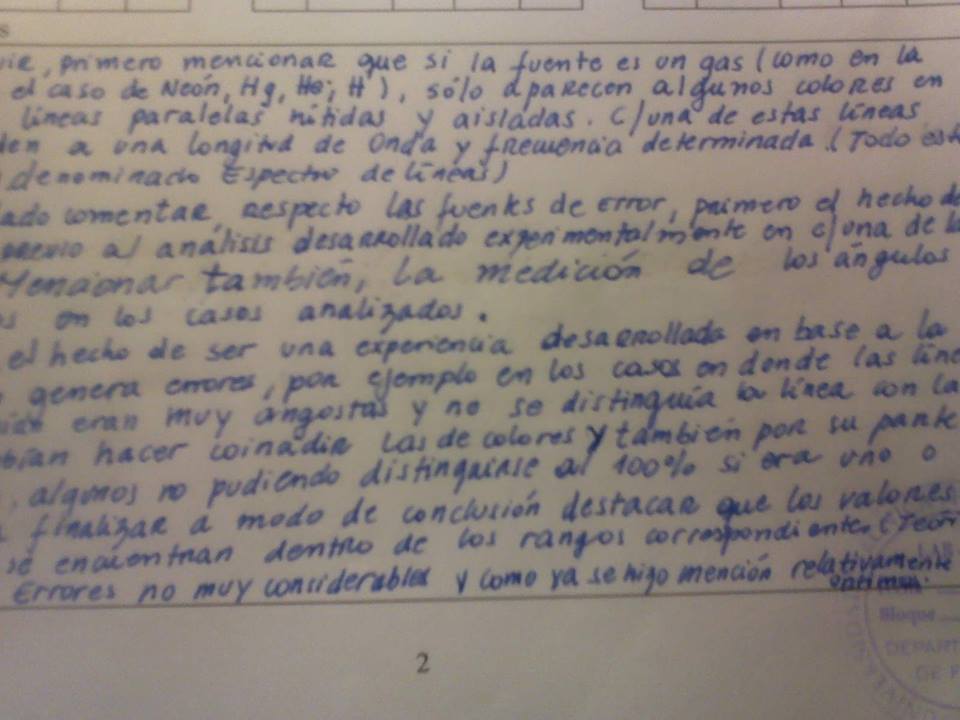 s
, primero mencionar que si la fuente es un gas (como en la
el caso de Neón, Hg, He, H), sólo aparecen algunos colores en
líneas paralelas nítidas y aisladas. C/una de estas líneas
den a una longitud de Onda y frecuencia determinada. (Todo est
denominado Espectro de líneas)
lado comentar, respecto las fuentes de Error, primero el hecho de
previo al análisis desarrollado experimentalmente en c/una de la
Mencionar también, la medición de los ángulos
os en los casos analizados.
el hecho de ser una experiencia desarrollada en base a la
genera errores, por ejemplo en los casos en donde las líne
eran muy angostas y no se distinguía la línea con la
bían hacer coincidir las de colores y también por su parte
, algunos no pudiendo distinguirse al 100% si era uno o
finalizar a modo de conclusión destacar que los valores
se encuentran dentro de los rangos correspondientes (Teóri
Errores no muy considerables y como ya se hizo mención relativamente
optimos.
Bloque
DEPART
DE F
2